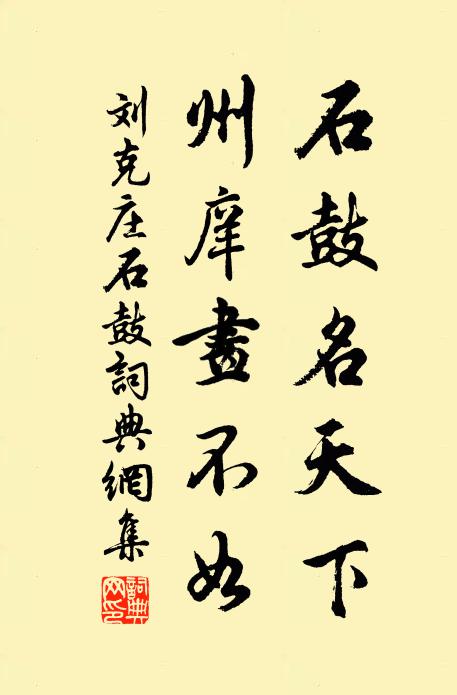 石鼓名天下
州庠畫不如
刘克庄石鼓詞典網集
詞典网印